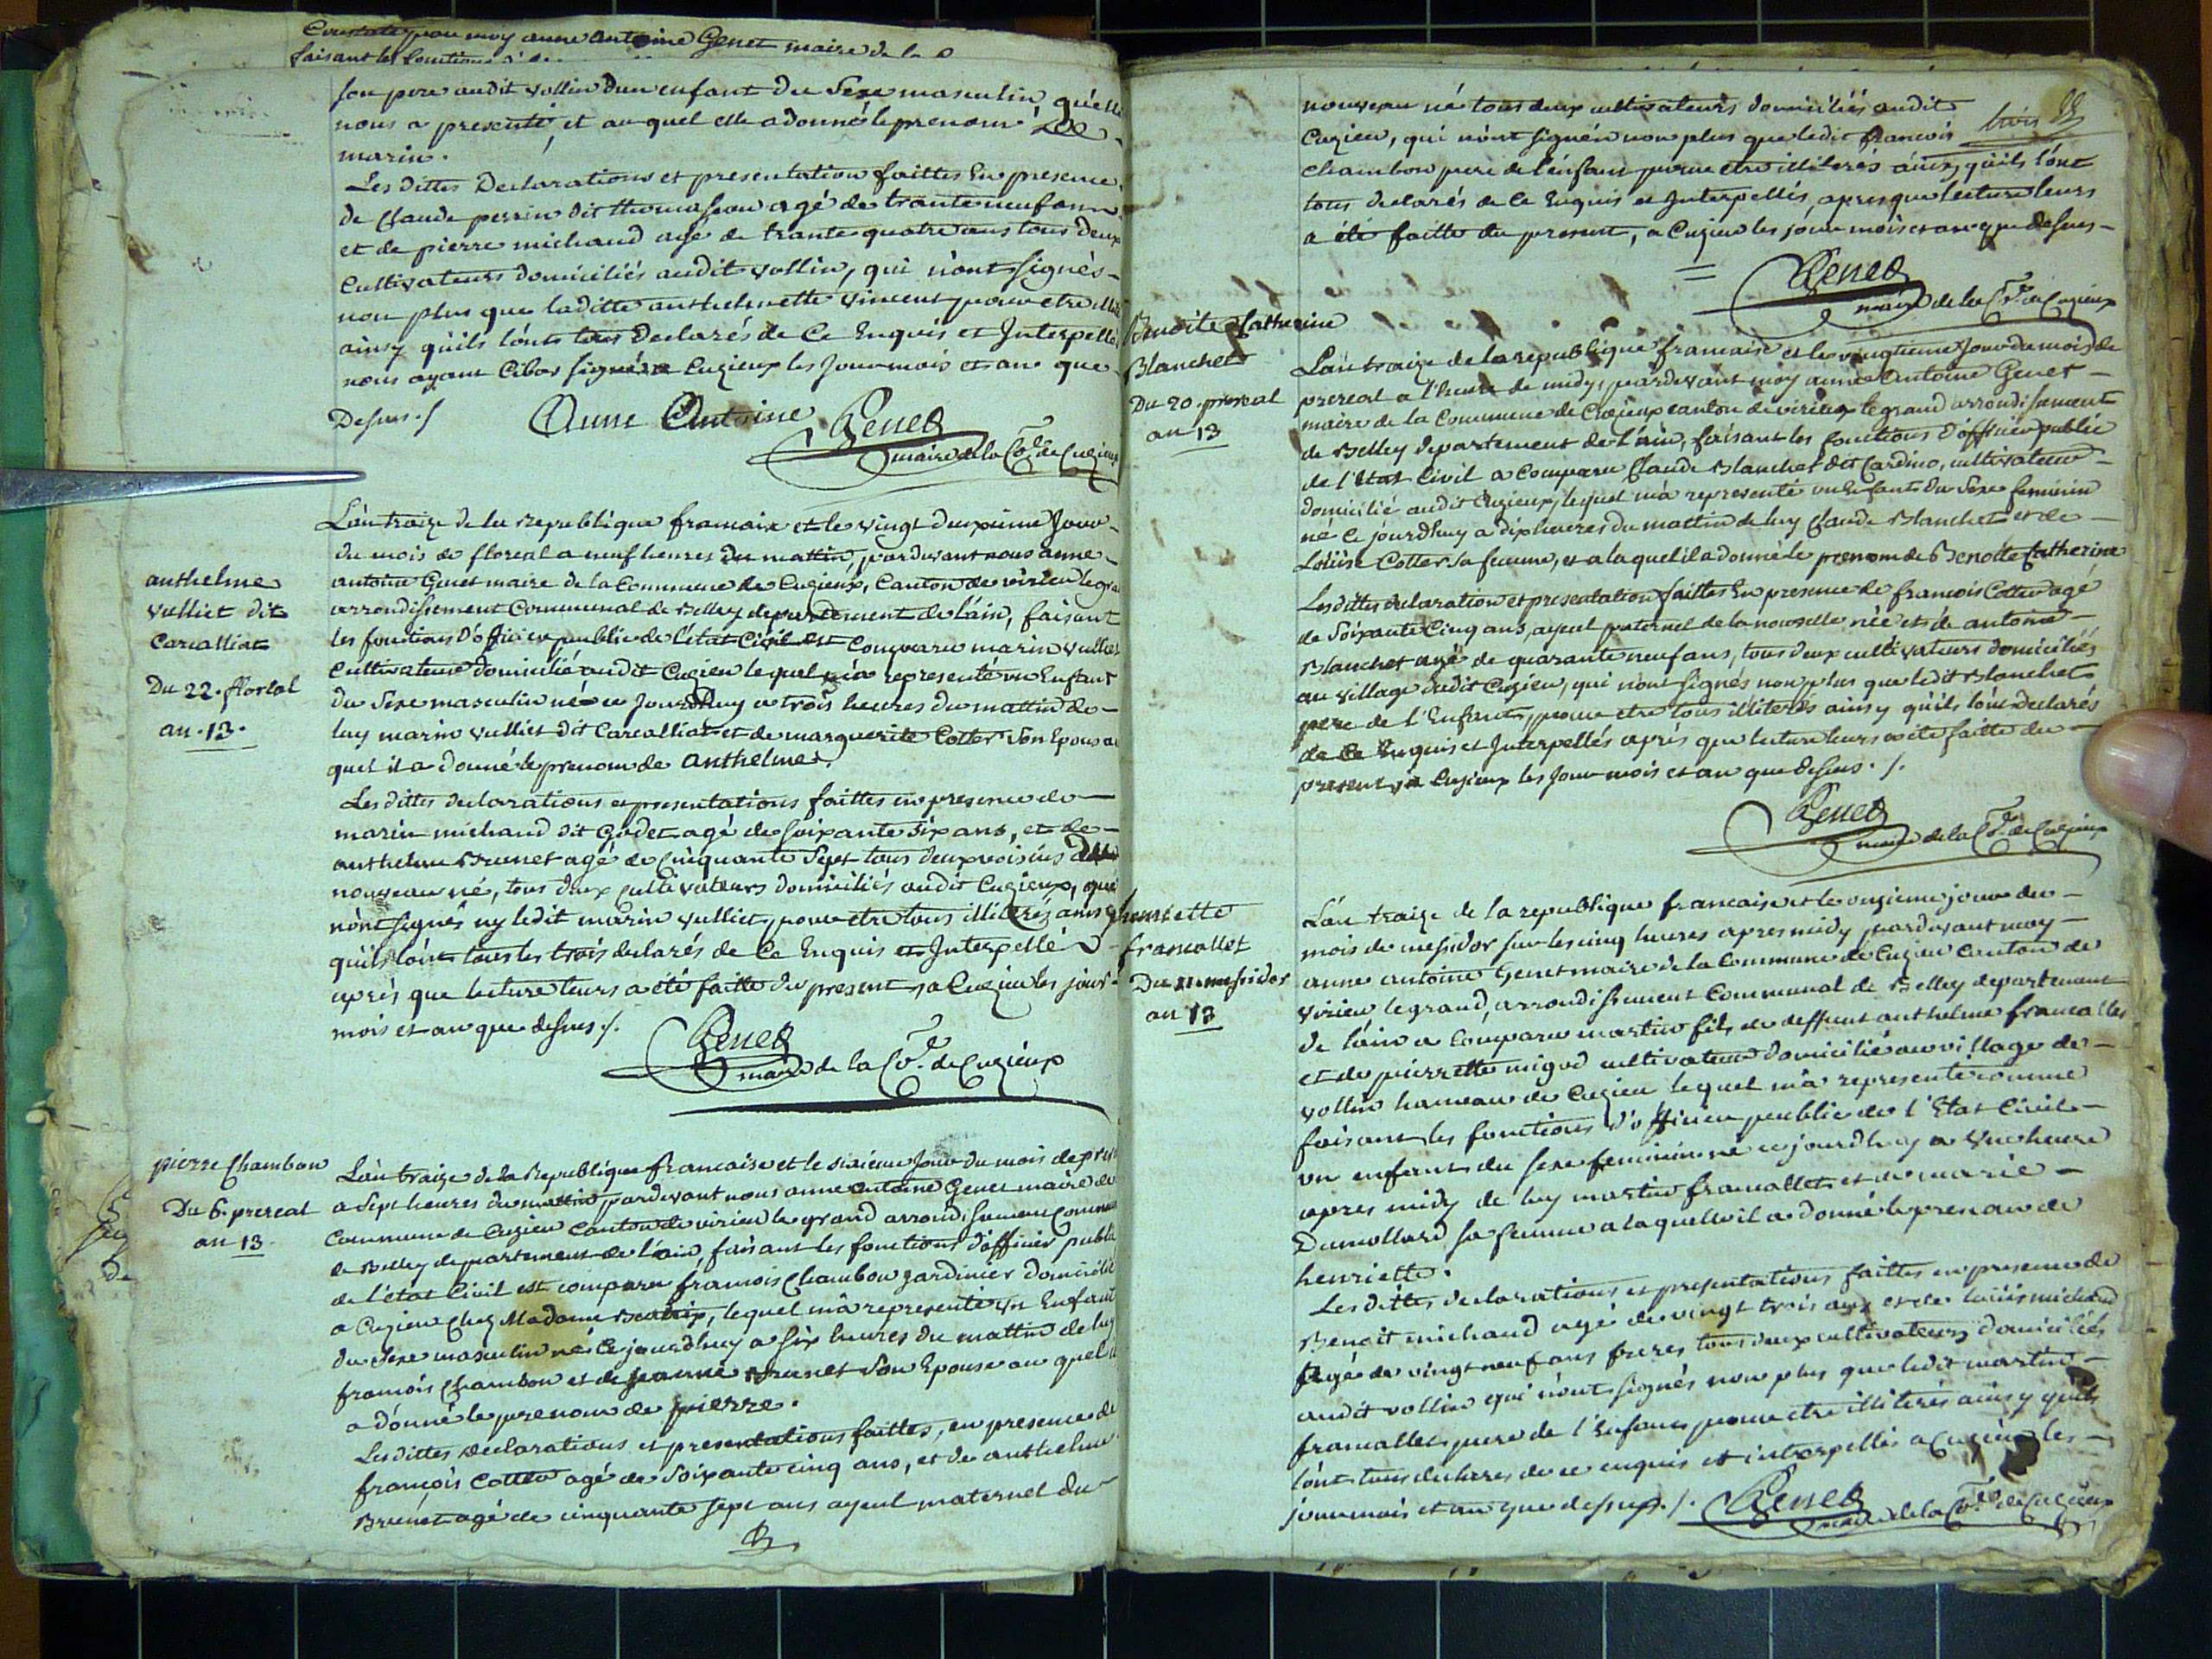 Constaté par moy anne antoine Genet maire de la
faisant les fonctions d'
son pere audit vollin d'un enfant du Sexe masculin qu'elle
nous a presenté, et au quel elle a donné le prenom de
marin.
Les dittes Declarations et presentation faittes En presence
de Claude perrin dit thomasson agé de trante neuf ans
et de pierre michaud age de trante quatre ans tous deux
Cultivateurs domiciliés audit vollin, qui n'ont signés
non plus que laditte anthelmette vincent pour etre
ainsy qu'ils l'ont tous Declarés de Ce Enquis et Interpellés
nous ayant Cibas signés a Cuzieux les Jour mois et an que
Desus ./. Anne Antoine Genet
maire de la Cne. de Cuzieux
anthelme
vulliet dit
Carcalliat
Du 22. floreal
an .13.
L'an traize de la Republique francaise et le vingt deuxieme Jour
du mois de floreal a neuf heures du mattin, pardevant nous anne
antoine Genet maire de la Commune de Cuzieux, Canton de virieu le gra
arrondissement Communal de Belley departement de l'ain, faisant
les fonctions d'officier public de l'état Civil est Comparu marin vulliet
Cultivateur domicilié audit Cuzieu lequel m'a representé un Enfant
du Sexe masculin né ce Jourdhuy a trois heures du mattin de
luy marin vulliet dit Carcalliat et de marguerite Cotter Son Epouse au
quel il a donné le prenom de anthelme.
Les dittes declarations et presentations faittes en presence de
marin michaud dit Godet agé de soixante six ans, et de
anthelme Brunet agé de Cinquante Sept tous deux voisins du
nouveau né, tous deux cultivateurs domiciliés audit Cuzieux, qui
n'ont signés ny ledit marin vulliet, pour etre tous illiterés ainsy
qu'ils l'ont tous les trois declarés de Ce Enquis et Interpellé
aprés que lecture leurs a été faitte du present, a Cuzieu les jour
mois et an que desus ./.
Genet
maire de la Cne. de Cuzieux
pierre Chambon
Du 6. prereal
an 13
L'an traize de la Republique francaise et le sixieme Jour du mois de prer
a Sept heures du mattin, pardevant nous anne antoine Genet maire de
Commune de Cuzieu Canton de virieu le grand arrondissement Commun
de Belley departement de l'ain, faisant les fonctions d'officier public
de l'état Civil est comparu francois Chambon jardinier domicilié
a Cuzieu Chez Madame, lequel m'a representé un Enfant
du Sexe masculin né Ce jourdhuy a six heures du mattin de luy
francois Chambon et de jeanne Brunet Son Epouse au quel il
a donné le prenom de pierre.
Les dittes declarations et presentations faittes, en presence de
francois Cotter agé de Soixante cinq ans, et de anthelme
Brunet agé de cinquante Sept ans ayeul maternel du
nouveau né tous deux cultivateurs domiciliés audit
Cuzieu, qui n'ont signés non plus que ledit francois trois
chambon pere de l'enfant pour etre illiterés ainsy qu'ils l'ont
tous declarés de Ce Enquis et Interpellés, apres que lecture leurs
a été faitte du present, a Cuzieu les jour mois et an que desus
Genet
maire de la Cne. de Cuzieux
Benoite Catherine
Blanchet
Du 20. prereal
an 13
L'an traize de la republique francaise et le vingtieme Jour du mois de
prereal a l'heure de midy, pardevant moy anne antoine Genet
maire de la Commune de Cuzieux canton de virieux le grand arrondisement
de Belley departement de l'ain, faisant les fonctions d'officier public
de l'état Civil a Comparu Claude Blanchet dit Cardino, cultivateur
domicilié audit Cuzieux, lequel m'a representé un Enfant du Sexe feminin
né Ce jourdhuy a dix heures du mattin de luy Claude Blanchet et de
Loüise Cotter sa femme, et a la quel il a donné le prenom de Benoite Catherine
Les dittes declaration et presentation faittes En presence de francois Cotter agé
de Soixante Cinq ans, ayeul paternel de la nouvelle née et de antoine
Blanchet agé de quarante neuf ans, tous deux cultivateurs domiciliés
au village dudit Cuzieu, qui n'ont signés non plus que ledit Blanchet
pere de l'Enfant, pour etre tous illiterés ainsy qu'ils l'ont declarés
de Ce Enquis et Interpellés aprés que lecture leurs a été faitte du
present, a Cuzieux les Jour mois et an que desus ./.
Genet
maire de la Cne. de Cuzieux
henriette
francallet
Du 11 messidor
an 13
L'an traize de la republique francaise et le onzieme jour du
mois de messidor sur les cinq heures apres midy pardevant moy
anne antoine Genet maire de la Commune de Cuzieu Canton de
virieu le grand, arrondissement Communal de Belley departement
de l'ain a Comparu martin fils de deffunt anthelme francallet
et de pierrette migod cultivateur domicilié au village de
vollin hameau de Cuzieu lequel m'a representé comme
faisant les fonctions d'officier public de l'Etat Civil
un enfant du sexe feminin né ce jourdhuy a une heure
apres midy de luy martin francallet et de marie
Dumollard sa femme a laquelle il a donné le prenom de
henriette.
Les dittes declarations et presentations faittes en presence de
Benoit michaud agé de vingt trois ans et de loüis michaud
agé de vingt neuf ans freres tous deux cultivateurs domiciliés
audit vollin qui n'ont signés non plus que ledit martin
francallet pere de l'Enfant, pour etre illiterés ainsy qu'ils
l'ont tous declarés de ce enquis et interpellés a Cuzieu les
jour mois et an que dessus ./. Genet
maire de la Cne. de Cuzieux